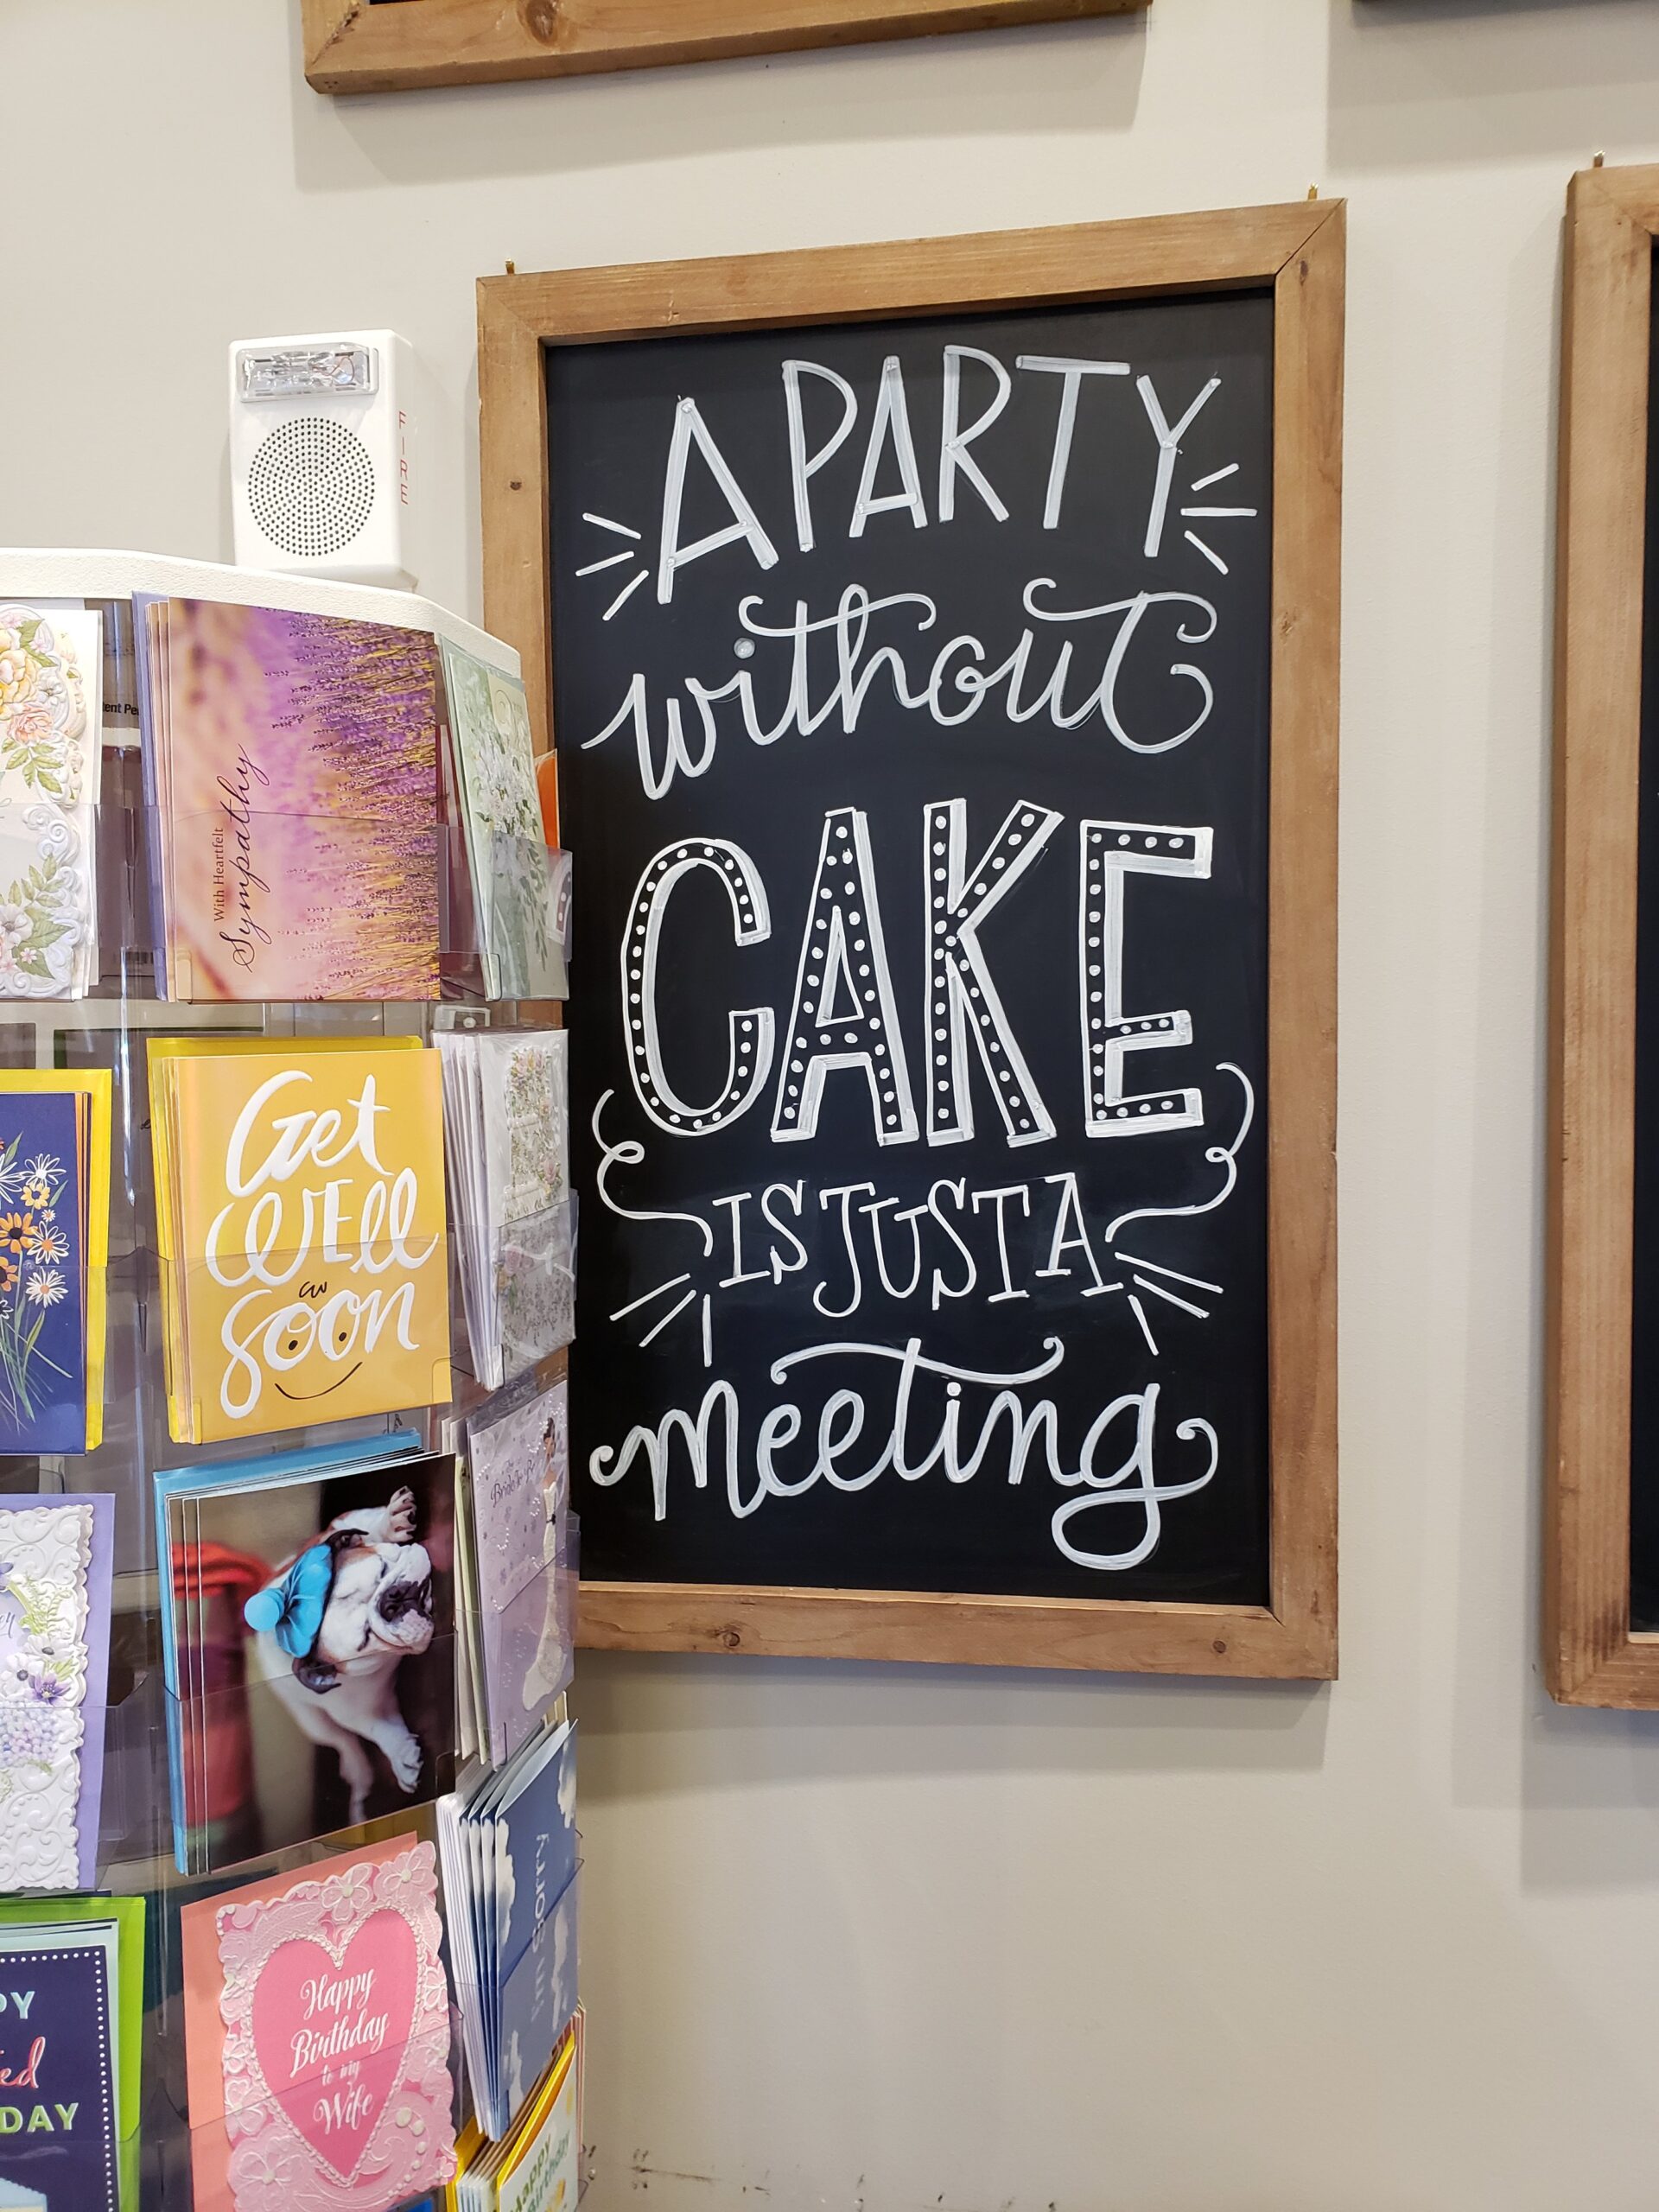 A PARTY
without
CAKE
IS JUST A
meeting
FIRE
With Heartfelt
Sympathy
Get
WEll
Soon
Happy
Birthday
to my
Wife
I'm Sorry
Bride To Be
Happy
Birthday
DAY